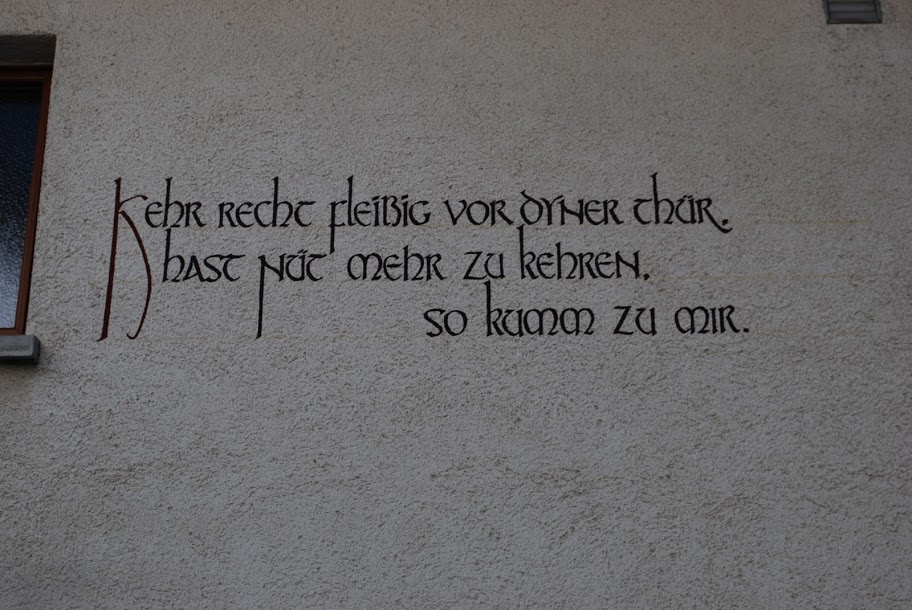 Kehr recht fleißig vor dyner thür,
hast nüt mehr zu kehren,
so kumm zu mir.